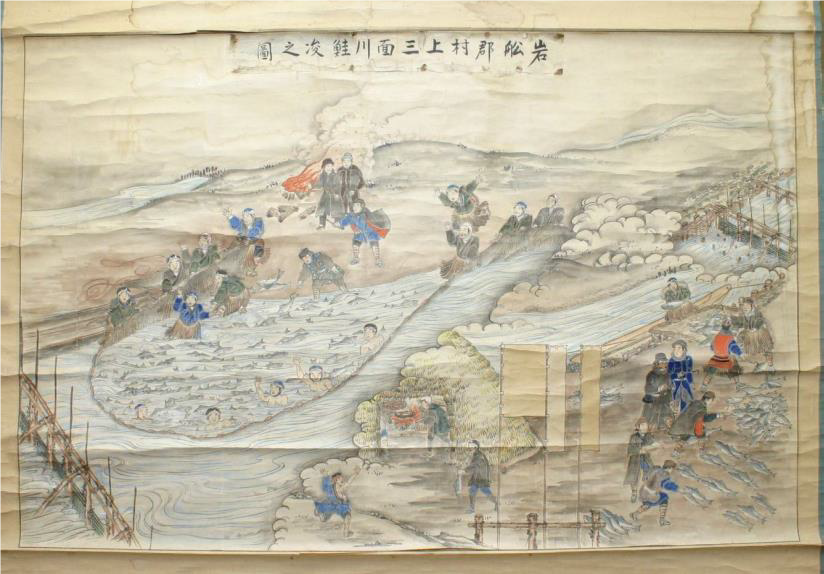 岩舩郡村上三面川鮭浚之圖